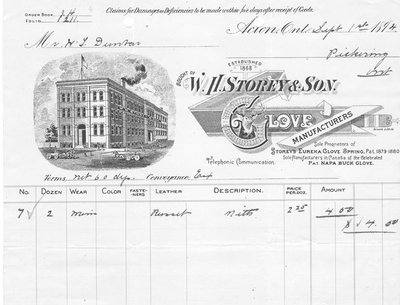 Claims for Damages or Deficiencies to be made within five days after receipt of Goods.
ORDER BOOK
FOLIO
Acton, Ont. Sept 1st 1894
Mr. H S Dunbar
Pickering
Ont
BOUGHT OF
ESTABLISHED
1868
W. H. STOREY & SON.
GLOVE
MANUFACTURERS
Sole Proprietors of
STOREY'S EUREKA GLOVE SPRING, Pat. 1879-1880
Sole Manufacturers in Canada of the Celebrated
PAT NAPA BUCK GLOVE.
Telephonic Communication.
Terms, net 60 dys. Conveyance, Exp
No. DOZEN WEAR COLOR FASTENERS LEATHER DESCRIPTION. PRICE PER DOZ. AMOUNT
7 2 Mens Russet Mitts 2 25 4 00
$ 4 00